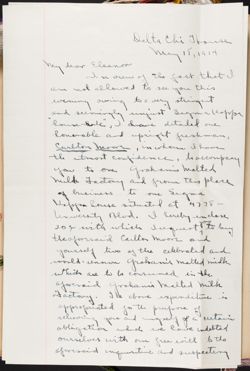 Delta Chi House
May 15, 1914
My dear Eleanor
In view of the fact that I
am not allowed to see you this
evening owing to my stringent
and seemingly unjust Kappa
house rules, I have detailed one
honorable and upright freshman,
Carlton Moore, in whom I have
the utmost confidence, to accompany
you to one Graham's Malted
Milk Factory and from this place
of business to one
Kappa house situated at
University Blvd. I hereby enclose
20¢ with which I request to buy
the aforesaid Carlton Moore and
yourself two of the celebrated and
world renown Graham's Malted milk
which are to be consumed in the
aforesaid Graham's Malted Milk
Factory. The above expenditure is
appropriated for the purpose of
relieving you and myself of a certain
obligation which we have
ourselves with our free will to the
aforesaid and